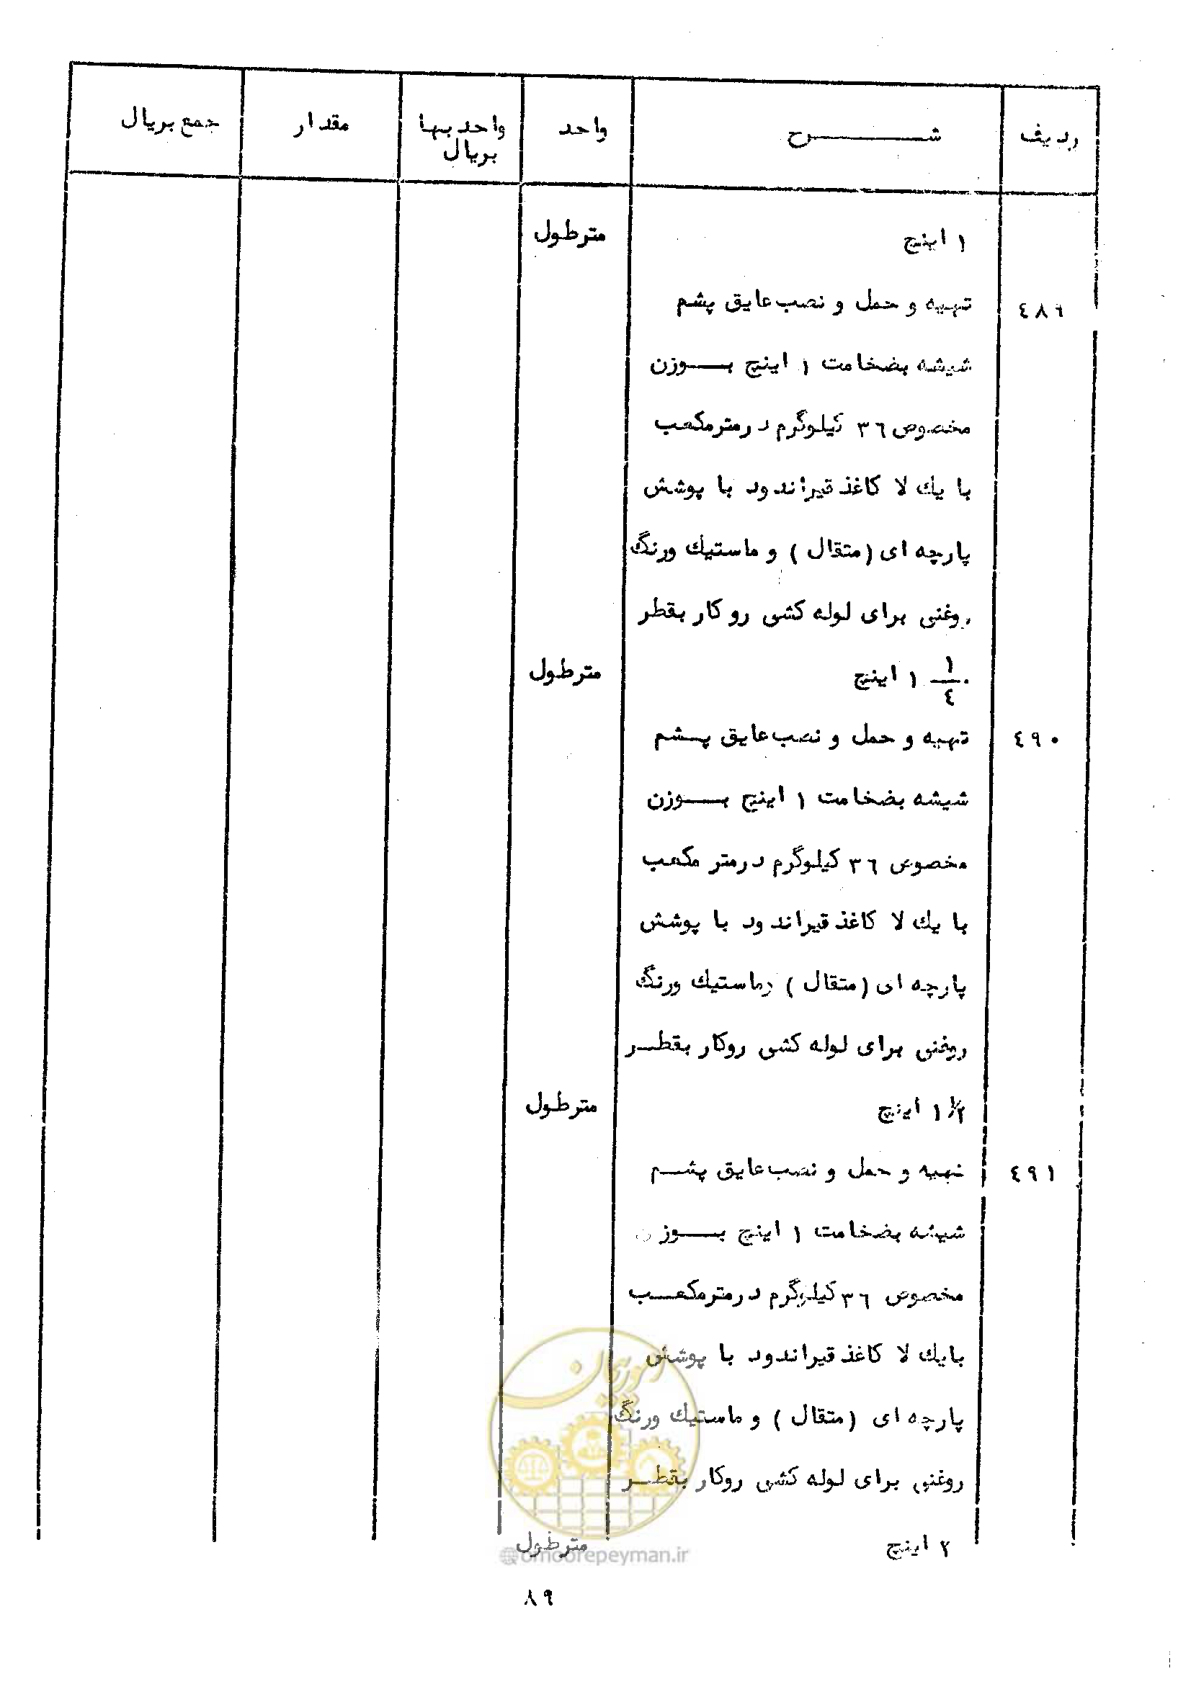 ردیف شـــــرح واحد واحد بها بریال مقدار جمع بریال
۱ اینچ مترطول
٤۸۹ تهیه و حمل و نصب عایق پشم
شیشه بضخامت ۱ اینچ بـــوزن
مخصوص ۳٦ کیلوگرم درمترمکعب
با یك لا کاغذ قیراندود با پوشش
پارچه ای (متقال) و ماستیك ورنگ
روغنی برای لوله کشی روکار بقطر
۱ ۱/٤ اینچ مترطول
٤۹۰ تهیه و حمل و نصب عایق پــشم
شیشه بضخامت ۱ اینچ بـــوزن
مخصوص ۳٦ کیلوگرم درمتر مکعب
با یك لا کاغذ قیراندود با پوشش
پارچه ای (متقال) وماستیك ورنگ
روغنی برای لوله کشی روکار بقطــر
۱ ۱/۲ اینچ مترطول
٤۹۱ تهیه و حمل و نصب عایق پشــم
شیشه بضخامت ۱ اینچ بـــوزن
مخصوص ۳٦ کیلوگرم درمترمکعــب
بایك لا کاغذ قیراندود با پوشش
پارچه ای (متقال) و ماستیك ورنگ
روغنی برای لوله کشی روکار بقطــر
۲ اینچ مترطول
امور پیمان
@omoorepeyman.ir
۸۹